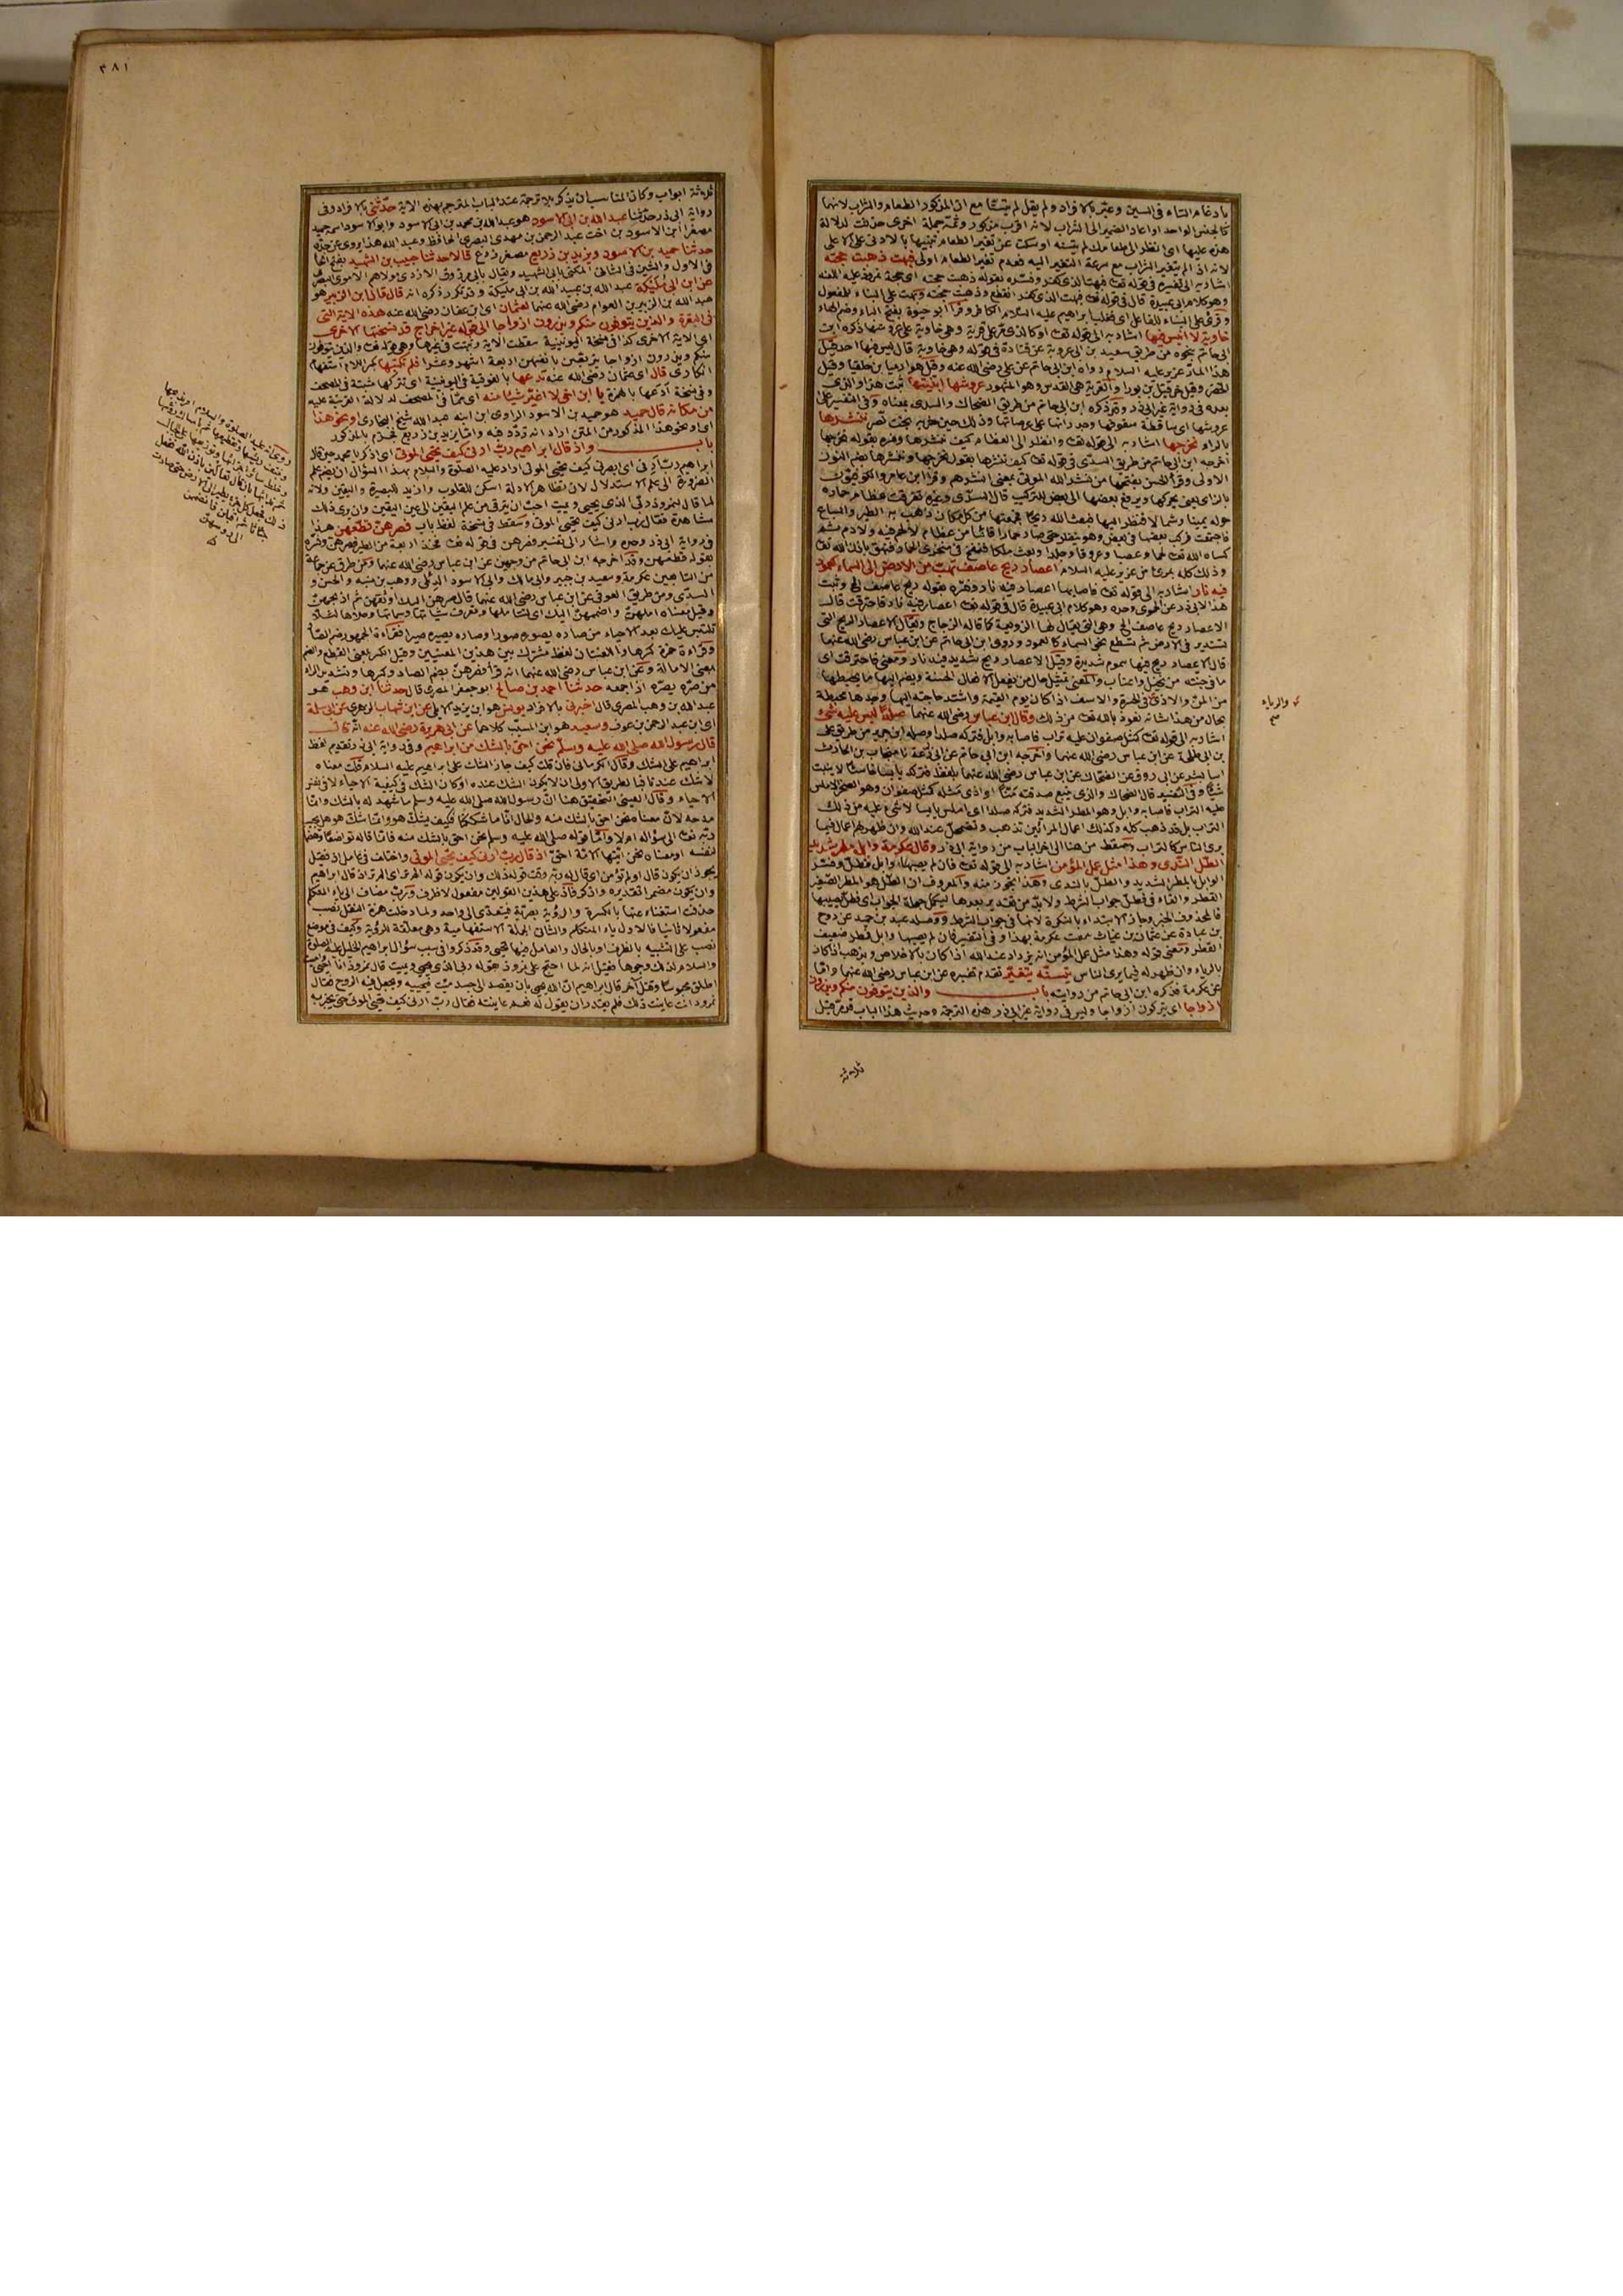 بادغام التاء في السين وعبّر بالافراد ولم يقل لم يتسنّيا مع ان المذكور الطعام والشراب لانهما
كالجنس الواحد او اعاد الضمير الى الشراب لانه اقرب مذكور وثمّة جملة اخرى حذفت لدلالة
هذه عليها اى انظر الى طعامك لم يتسنه او سكت عن تغير الطعام تنبيها بالادنى على الاعلى
لانه اذا لم يتغير الشراب مع سرعة التغير اليه فعدم تغير الطعام اولى فبهت ذهبت حجته
اشار به الى تفسيره في قوله تعا فبهت الذى كفر وفسّره بقوله ذهبت حجته
وهو كلام ابى عبيدة قال في قوله تعا فبهت الذى كفر انقطع وذهبت حجته وبهت على البناء للمفعول
وقرئ على البناء للفاعل اى فغلب ابراهيم عليه السلام الكافر وقرأ ابو حيوة بفتح الباء وضم الهاء
خاوية لا انيس فيها اشار به الى قوله تعا او كالذى مرّ على قرية وهي خاوية على عروشها ذكره ابن
ابى حاتم بنحوه من طريق سعيد بن ابى عروبة عن قتادة في قوله وهي خاوية قال ليس فيها احد قيل
هذا المار عزير عليه السلام رواه ابن ابى حاتم عن على رضي الله عنه وقيل هو ارميا بن حلقيا وقيل
الخضر وقيل حزقيل بن بورا والقرية هي القدس وهو المشهور عروشها ابنيتها ثبت هذا والذى
بعده في رواية غير ابى ذر وقد ذكره ابن ابى حاتم من طريق الضحاك والسدى بمعناه وفى التفسير على
عروشها اى ساقطة سقوفها وجدرانها على عرصاتها وذلك حين خربه بخت نصر ننشرها
بالراء نخرجها اشار به الى قوله تعا وانظر الى العظام كيف ننشرها وفسره بقوله نخرجها
اخرجه ابن ابى حاتم من طريق السدّى في قوله تعا كيف ننشرها يقول نخرجها وننشرها بضم النون
الاولى وقرأ الحسن بفتحها من نشر الله الموتى بمعنى انشرهم وقرأ ابن عامر والكوفيون
بالزاى يعنى نحركها ويرفع بعضها الى بعض للتركيب قال السدّى وغيره تفرقت عظام حماره
حوله يمينا وشمالا فنظر اليها فبعث الله ريحا فجمعتها من كل مكان ذهب به الطير والسباع
فاجتمعت فركب بعضها في بعض وهو ينظر حتى صار حمارا قائما من عظام لا لحم فيه ولا دم ثم
كساه الله تعا لحما وعصبا وعروقا وجلدا وبعث ملكا فنفخ في منخرى الحمار فنهق باذن الله تعا
وذلك كله بمرئ من عزير عليه السلام اعصار ريح عاصف تهب من الارض الى السماء كعمود
فيه نار اشار به الى قوله تعا فاصابها اعصار فيه نار وفسّره بقوله ريح عاصف الخ وثبت
هذا لابى ذر عن الحموى وحده وهو كلام ابى عبيدة قال في قوله تعا اعصار فيه نار فاحترقت قال
الاعصار ريح عاصف الخ وهي التى يقال لها الزوبعة كما قاله الزجاج ويقال الاعصار الريح التى
تستدير في الارض ثم تسطع نحو السماء كالعمود وروى ابن ابى حاتم عن ابن عباس رضي الله عنهما
قال الاعصار ريح فيها سموم شديدة وقيل الاعصار ريح شديد فيه نار ومعنى فاحترقت اى
ما في جنته من نخيل واعناب والمعنى تمثيل حال من يفعل الافعال الحسنة ويضم اليها ما يحبطها
من المنّ والاذى في الحسرة والاسف اذا كان يوم القيمة واشتد حاجته اليها وجدها محبطة
بحال من هذا شانه نعوذ بالله تعا من ذلك وقال ابن عباس رضي الله عنهما صلدا ليس عليه شئ
اشار به الى قوله تعا كمثل صفوان عليه تراب فاصابه وابل فتركه صلدا وصله ابن جرير من طريق على
بن ابى طلحة عن ابن عباس رضي الله عنهما واخرجه ابن ابى حاتم عن ابى زرعة نا منجاب بن الحارث
انبا بشر عن ابى روق عن الضحاك عن ابن عباس رضي الله عنهما بلفظ فتركه يابسا قاسيا لا ينبت
شيئا وفى التفسير قال الضحاك والذى يتبع صدقته منّا او اذى مثله كمثل صفوان وهو الصخر الاملس
عليه التراب فاصابه وابل وهو المطر الشديد فتركه صلدا اى املس يابسا لا شئ عليه من ذلك
التراب بل قد ذهب كله وكذلك اعمال المرائين تذهب وتضمحل عند الله وان ظهر لهم اعمال فيما
يرى الناس كالتراب وسقط من هنا الى اخر الباب من رواية ابى ذر وقال عكرمة وابل مطر شديد
الطلّ الندى وهذا مثل عمل المؤمن اشار به الى قوله تعا فان لم يصبها وابل فطل وفسّر
الوابل بالمطر الشديد والطلّ بالندى وهذا تجوّز منه والمعروف ان الطل هو المطر الصغير
القطر والفاء في فطلّ جواب الشرط ولا بدّ من تقدير بعدها ليكمل جملة الجواب اى فطل يصيبها
فالمحذوف الخبر وجاز الابتداء بالنكرة لانها في جواب الشرط ووصله عبد بن حميد عن روح
بن عبادة عن عثمان بن غياث سمعت عكرمة بهذا وفى التفسير فان لم يصبها وابل فطل ضعيف
القطر ومعنى قوله وهذا مثل عمل المؤمن انه يزداد عند الله اذا كان بالاخلاص ويذهب اذا كان
بالرياء وان ظهر له فيما يرى الناس يتسنّه يتغيّر تقدم تفسيره عن ابن عباس رضي الله عنهما وامّا
عن عكرمة فذكره ابن ابى حاتم من روايته باب والذين يتوفون منكم ويذرون
ازواجا اى يتركون ازواجا وليس في رواية غير ابى ذر هذه الترجمة وحديث هذا الباب قد مرّ قبل
ثلاثة
والرياء
صح
٣٨١
ثلاثة ابواب وكان المناسب ان يذكر بلا ترجمة عند الباب المترجم بهذه الاية حدّثنى بالافراد وفى
رواية ابى ذر حدّثنا عبد الله بن ابى الاسود هو عبد الله بن محمد بن ابى الاسود وابو الاسود اسمه حميد
مصغرا ابن الاسود بن اخت عبد الرحمن بن مهدى البصرى الحافظ وعبد الله هذا يروى عن جدّه
حدثنا حميد بن الاسود ويزيد بن زريع مصغر زرع قالا حدثنا حبيب بن الشهيد بفتح الحا
في الاول والشين في الثانى المكنى بابى الشهيد ويقال بابى مرزوق الازدى مولاهم الاموى البصرى
عن ابن ابى مليكة عبد الله بن عبيد الله بن ابى مليكة وقد تكرر ذكره انه قال قال ابن الزبير هو
عبد الله بن الزبير بن العوام رضي الله عنهما لعثمان اى ابن عفان رضي الله عنه هذه الاية التى
في البقرة والذين يتوفون منكم ويذرون ازواجا الى قوله غير اخراج قد نسختها الاخرى
اى الاية الاخرى كذا في نسخة اليونينية سقطت الاية وثبتت في غيرها وهي قوله تعا والذين يتوفون
منكم ويذرون ازواجا يتربصن بانفسهن اربعة اشهر وعشرا فلم تكتبها بكسر اللام استفهام
انكارى قال اى عثمان رضي الله عنه ندعها بالفوقية في اليونينية اى نتركها مثبتة في المصحف
وفى نسخة أدعها بالهمزة يا ابن اخى لا اغيّر شيئا منه اى ممّا في المصحف لدلالة القرينة عليه
من مكانه قال حميد هو حميد بن الاسود الراوى ابن ابنه عبد الله شيخ البخارى او نحو هذا
اى او نحو هذا المذكور من المتن اراد انه تردّد فيه وامّا يزيد بن زريع فجزم بالمذكور
باب واذ قال ابراهيم ربّ ارنى كيف تحيى الموتى اى اذكر يا محمد حين قال
ابراهيم ربّ ارنى اى ابصرنى كيف تحيى الموتى اراد عليه الصلوة والسلام بهذا السؤال ان يضم علم
الضرورى الى علم الاستدلال لان تظاهر الادلة اسكن للقلوب وازيد للبصيرة واليقين ولانه
لما قال لنمروذ ربّى الذى يحيى ويميت احبّ ان يترقى من علم اليقين الى عين اليقين وان يرى ذلك
مشاهدة فقال رب ارنى كيف تحيى الموتى وسقط في نسخة لفظ باب فصرهنّ قطّعهنّ هذا
في رواية ابى ذر وحده واشار الى تفسير فصرهن في قوله تعا فخذ اربعة من الطير فصرهنّ وفسّره
بقوله قطعهن وقد اخرجه ابن ابى حاتم من وجهين عن ابن عباس رضي الله عنهما ومن طرق عن جماعة
من التابعين عكرمة وسعيد بن جبير وابى مالك وابى الاسود الدئلى ووهب بن منبه والحسن و
السدّى ومن طريق العوفى عن ابن عباس رضي الله عنهما قال صرهنّ اليك اوثقهن ثم اذبحهنّ
وقيل معناه املهنّ واضممهنّ اليك اى لتتاملها وتعرف شياتها وسماتها وحلاها لئلا
تلتبس عليك بعد الاحياء من صاره يصوره صورا وصاره يصيره صيرا فقراءة الجمهور بضم الصاد
وقراءة حمزة بكسرها واللغتان لفظ مشترك بين هذين المعنيين وقيل الكسر بمعنى القطع والضم
بمعنى الامالة وعن ابن عباس رضي الله عنهما انه قرأ فصرّهنّ بضم الصاد وكسرها وتشديد الراء
من صرّه يصرّه اذا جمعه حدثنا احمد بن صالح ابو جعفر المصرى قال حدثنا ابن وهب هو
عبد الله بن وهب المصرى قال اخبرنى بالافراد يونس هو ابن يزيد الايلى عن ابن شهاب الزهرى عن ابى سلمة
اى ابن عبد الرحمن بن عوف وسعيد هو ابن المسيّب كلاهما عن ابى هريرة رضي الله عنه انه قال
قال رسول الله صلى الله عليه وسلّم نحن احقّ بالشك من ابراهيم وفى رواية ابى ذر بتقديم لفظ
ابراهيم على الشك وقال الكرمانى فان قلت كيف جاز الشك على ابراهيم عليه السلام قلت معناه
لا شك عندنا فبا الطريق الاولى ان لا يكون الشك عنده او كان الشك في كيفية الاحياء لا في نفس
الاحياء وقال العينى التحقيق هنا انّ رسول الله صلى الله عليه وسلم ما شهد له بالشك وانّما
مدحه لانّ معناه نحن احق بالشك منه والحال انّا ما شككنا فكيف يشكّ هو وانّما شكّ هو هل يجيبه
ربّه تعا الى سؤاله او لا وانّما قوله صلى الله عليه وسلم نحن احق بالشك منه فانّما قاله تواضعا وهضما
لنفسه او معناه نحن ايّتها الامّة احقّ اذ قال ربّ ارنى كيف تحيى الموتى واختلف في عامل اذ فقيل
يجوز ان يكون قال اولم تؤمن اى قال له ربّه وقت قوله ذلك وان يكون قوله الم تر اى الم تر اذ قال ابراهيم
وان يكون مضمرا تقديره واذكر فاذ على هذين القولين مفعول لا ظرف وربّ مضاف الى ياء المتكلم
حذفت استغناء عنها بالكسرة والرؤية بصريّة فيتعدّى الى واحد ولما دخلت همزة النقل نصب
مفعولا ثانيا فالاول ياء المتكلم والثانى الجملة الاستفهامية وهي معلّقة للرؤية وكيف في موضع
نصب على التشبيه بالظرف او بالحال والعامل فيها تحيى وقد ذكروا في سبب سؤال ابراهيم الخليل عليه الصلوة
والسلام لذلك وجوها فقيل انه لما احتج على نمروذ بقوله ربّى الذى يحيى ويميت قال نمروذ انا احيى واميت
اطلق محبوسا وقتل آخر قال ابراهيم انّ الله يحيى بان يقصد الى جسد ميّت فيحييه ويجعل فيه الروح فقال
نمرود انت عاينت ذلك فلم يقدر ان يقول له نعم عاينته فقال ربّ ارنى كيف تحيى الموتى حتى يخبر به